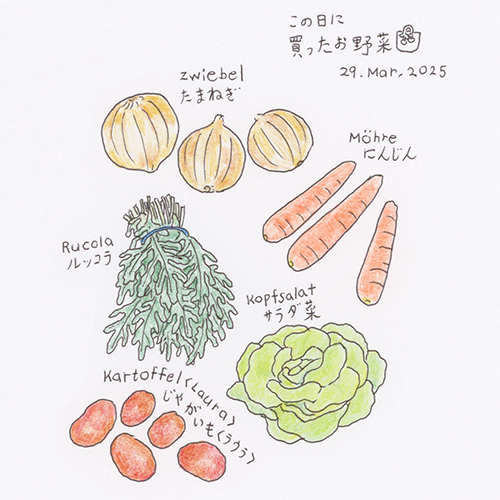 この日に
買ったお野菜
29. Mar. 2025
zwiebel
たまねぎ
Möhre
にんじん
Rucola
ルッコラ
Kopfsalat
サラダ菜
Kartoffel〈Laura〉
じゃがいも〈ラウラ〉